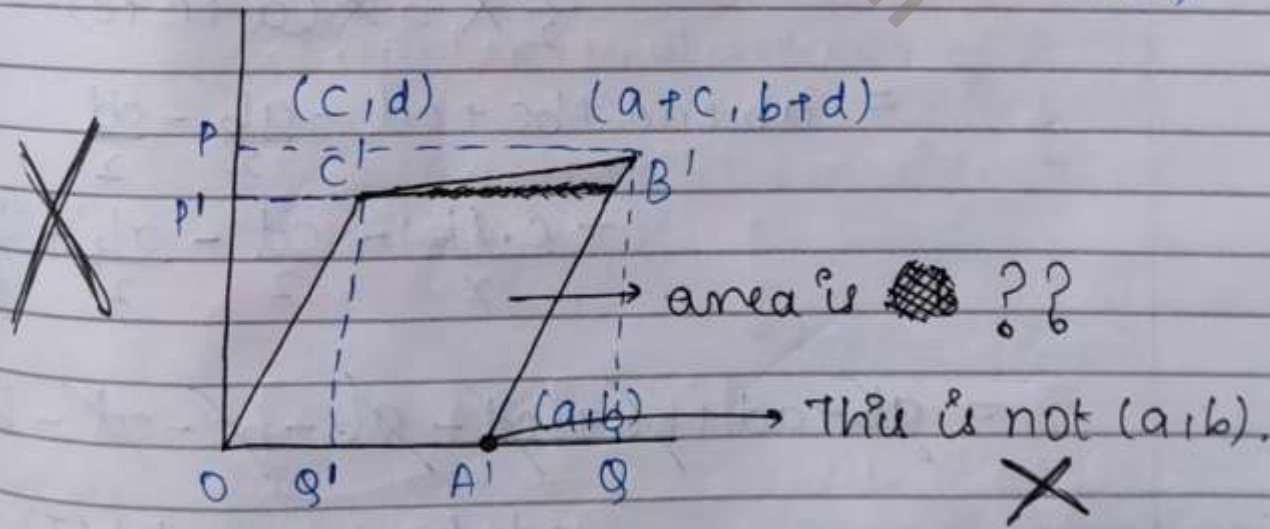 (c,d) (a+c, b+d)
P
C'
B'
P'
area is ??
(a,b) This is not (a,b).
O Q' A' Q